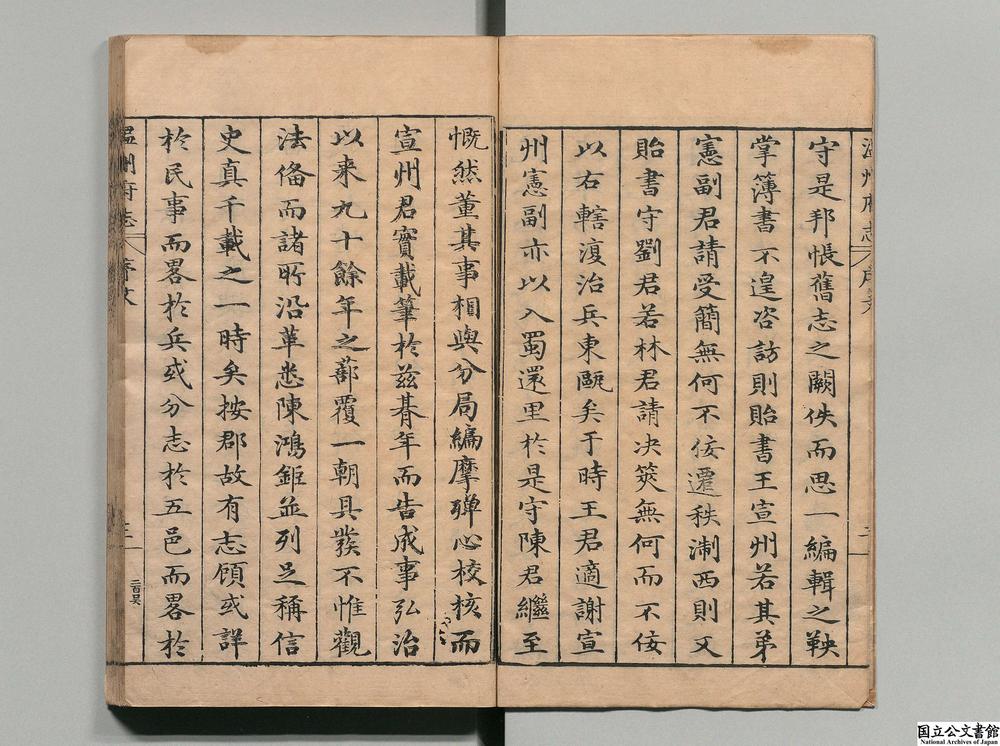 守是邦悵舊志之闕佚而思一編輯之鞅
掌簿書不遑咨訪則貽書王宣州若其弟
憲副君請受簡無何不佞遷秩浙西則又
貽書守劉君若林君請决筴無何而不佞
以右轄復治兵東甌矣于時王君適謝宣
州憲副亦以入蜀還里於是守陳君繼至
慨然董其事相與分局編摩殫心校核而
宣州君實載筆於茲朞年而告成事弘治
以来九十餘年之蔀覆一朝具發不惟觀
法俻而諸所沿革悉陳鴻鉅並列足稱信
史真千載之一時矣按郡故有志顧或詳
於民事而畧於兵或分志於五邑而畧於
溫州府志
序文
二
溫州府志
序文
三
国立公文書館
National Archives of Japan